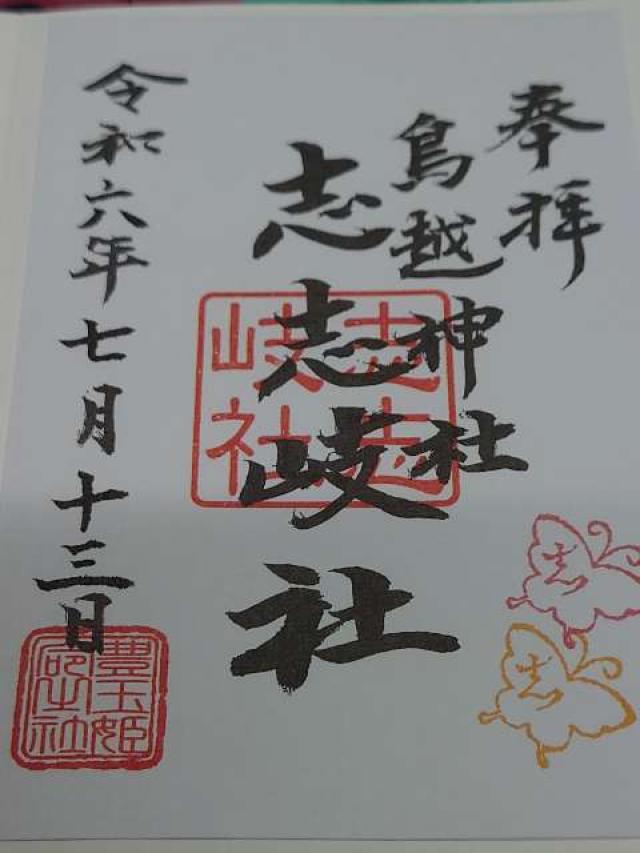 奉拝
鳥越神社
志志岐社
志志
岐社
令和六年七月十三日
豊玉姫
社
志
志